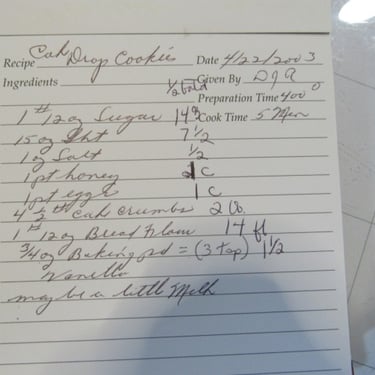 Recipe Cak Drop Cookies Date 4/22/2003
Ingredients 1/2 batd Given By DJR
Preparation Time 400°
1 # 12 oz Sugar 14 oz Cook Time 5 Min
15 oz Sht 7 1/2
1 oz Salt 1/2
1 pt honey 1 c
1 pt eggs 1 c
4 1/2 # Cak crumbs 2 lb.
1 # 12 oz Bread Flour 14 fl
3/4 oz Baking pd = (3 tsp) 1 1/2
Vanilla
maybe a little Milk